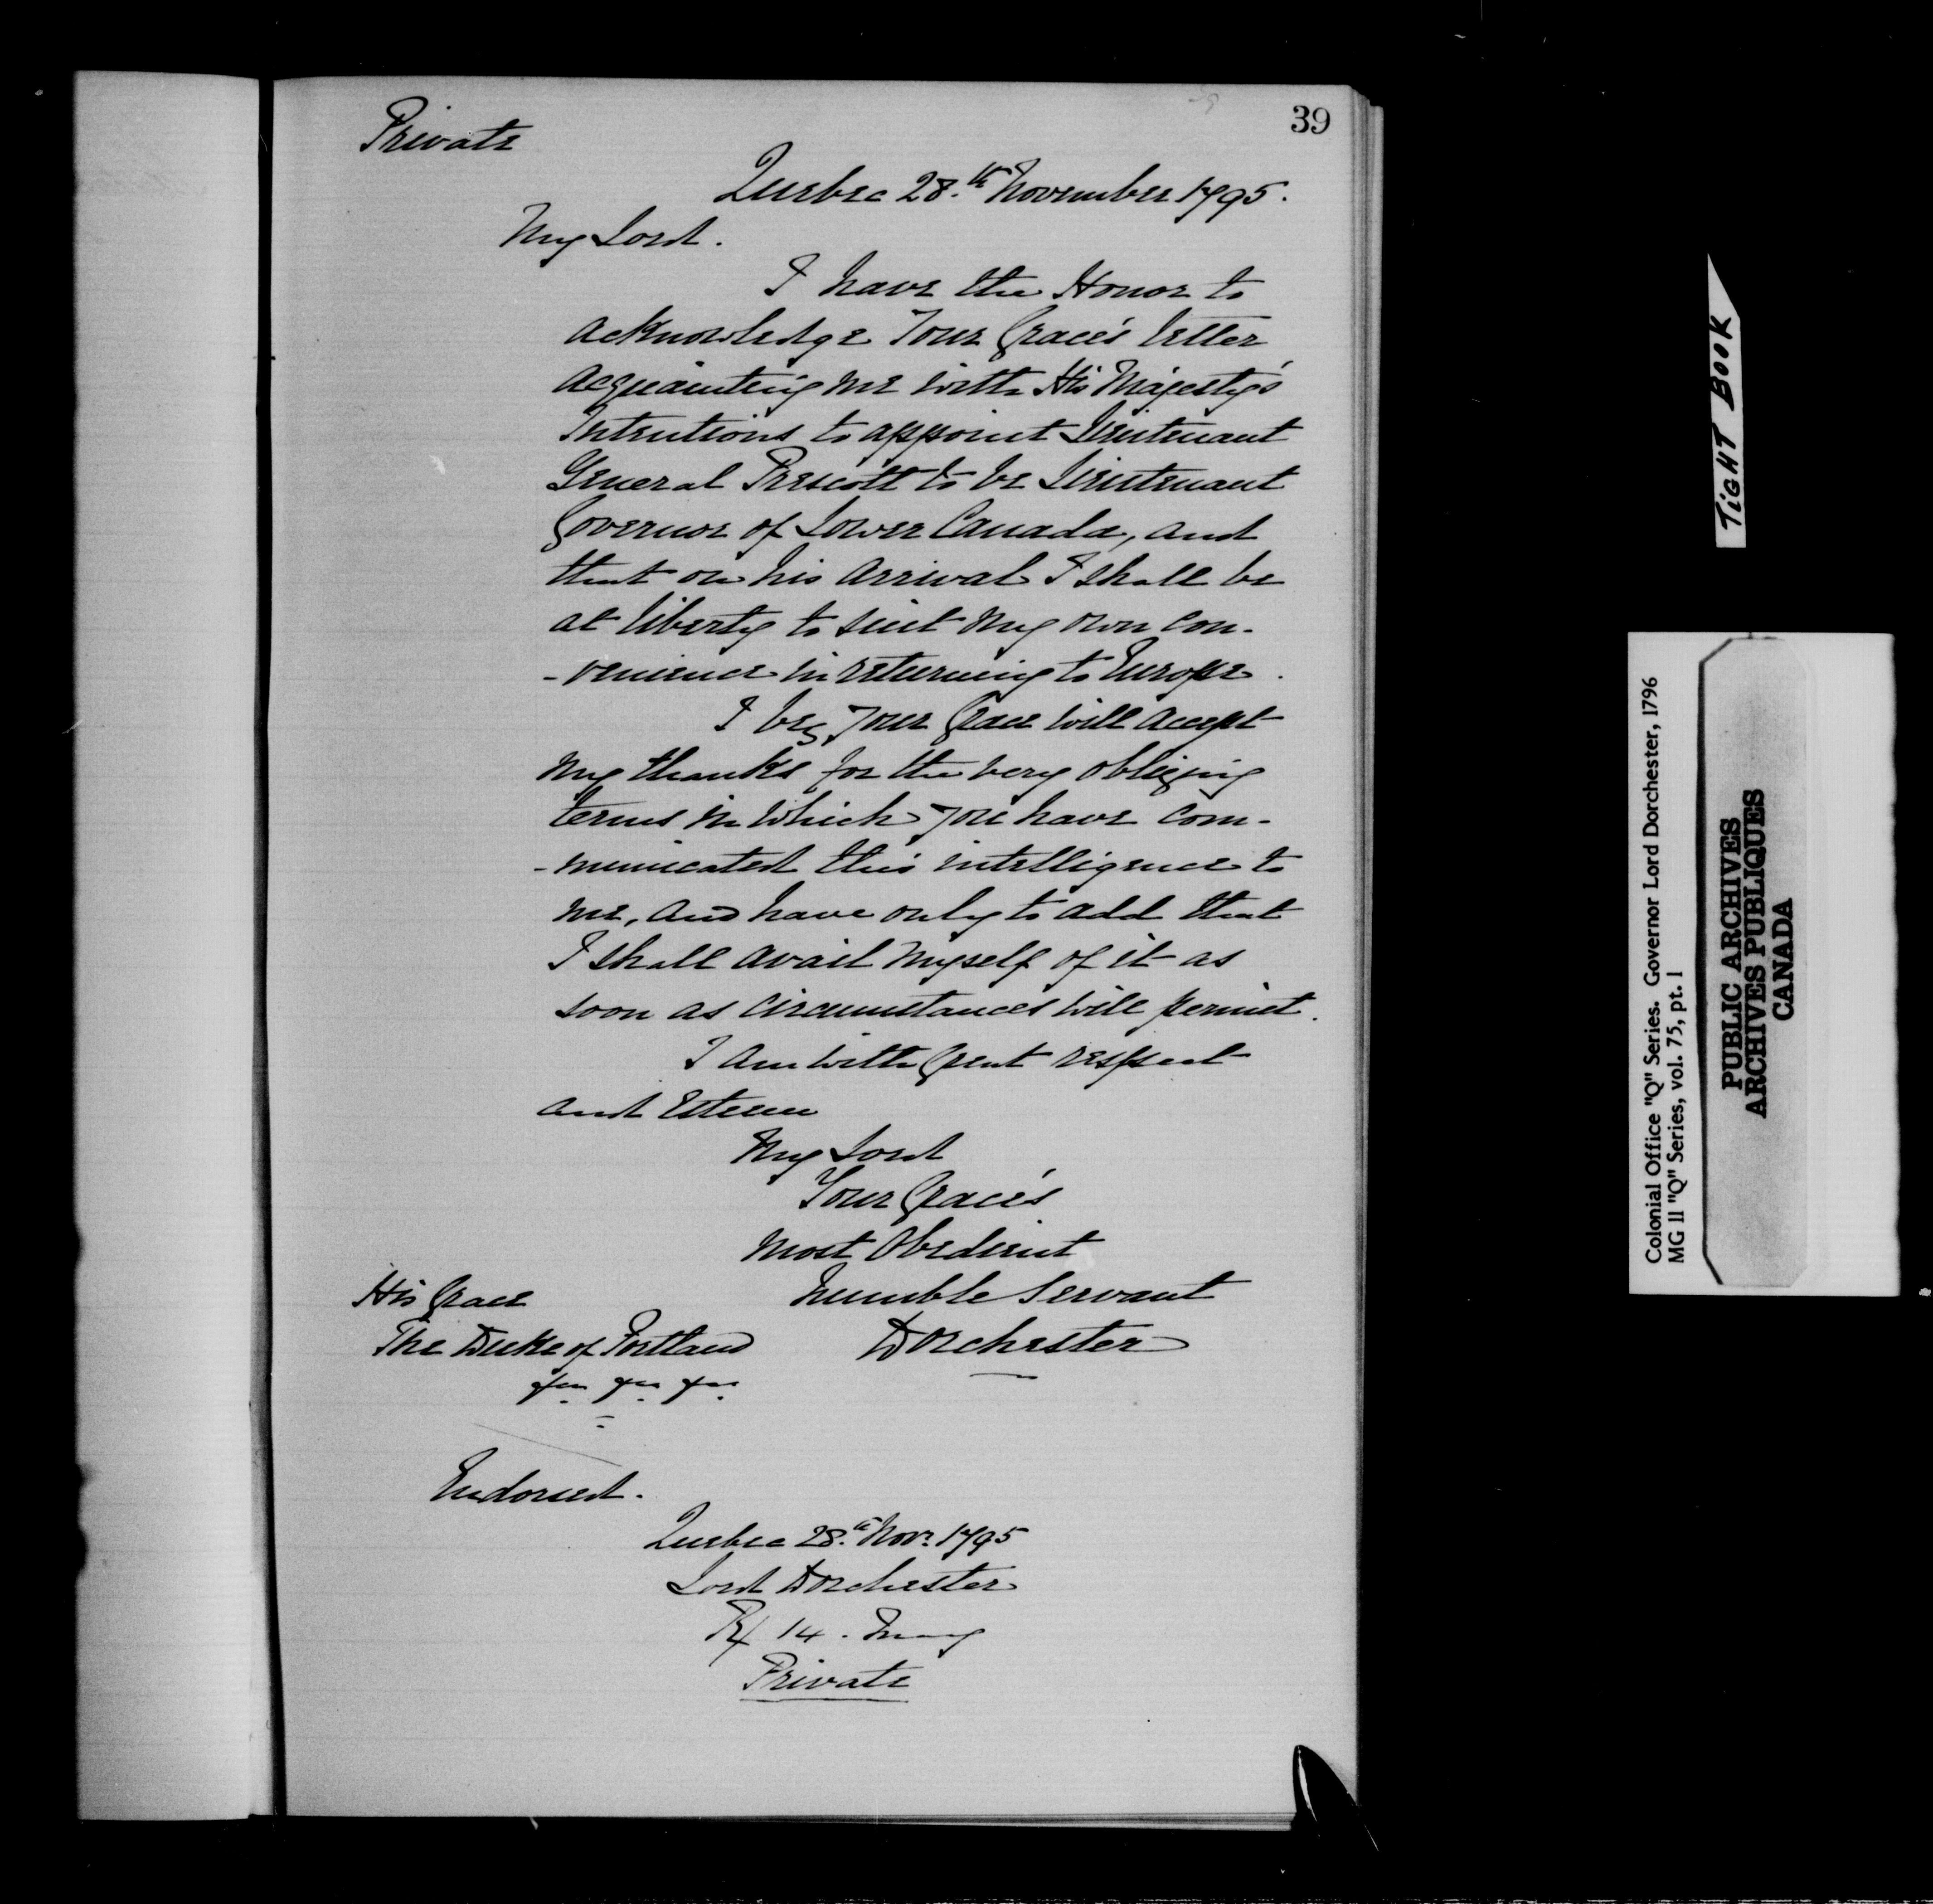 39
Private
Quebec 28.th November 1795.
My Lord.
I have the Honor to
acknowledge Your Grace's letter
acquainting me with His Majesty's
Intentions to appoint Lieutenant
General Prescott to be Lieutenant
Governor of Lower Canada, and
that on his arrival I shall be
at liberty to suit my own con-
-venience in returning to Europe.
I beg Your Grace will accept
my thanks for the very obliging
terms in which you have com-
-municated this intelligence to
me, and have only to add that
I shall avail myself of it as
soon as circumstances will permit.
I am with great respect
and Esteem
My Lord
Your Grace's
Most Obedient
humble Servant
Dorchester
His Grace
The Duke of Portland
&c. &c. &c.
Endorsed.
Quebec 28.th Novr. 1795
Lord Dorchester
R/ 14. May
Private
TIGHT BOOK
Colonial Office "Q" Series. Governor Lord Dorchester, 1796
MG 11 "Q" Series, vol. 75, pt. 1
PUBLIC ARCHIVES
ARCHIVES PUBLIQUES
CANADA